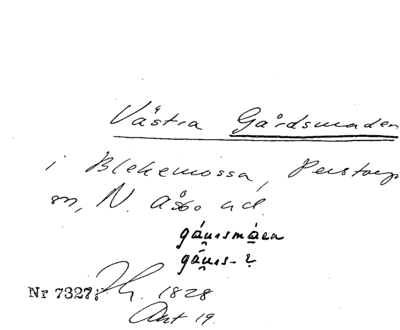 Västra Gårdsmaden
i Blekemossa, Perstorp
sn, N. Åsbo hd.
gáu̯smáen
gáu̯s-
Nr 7327; 1828
Akt 19.